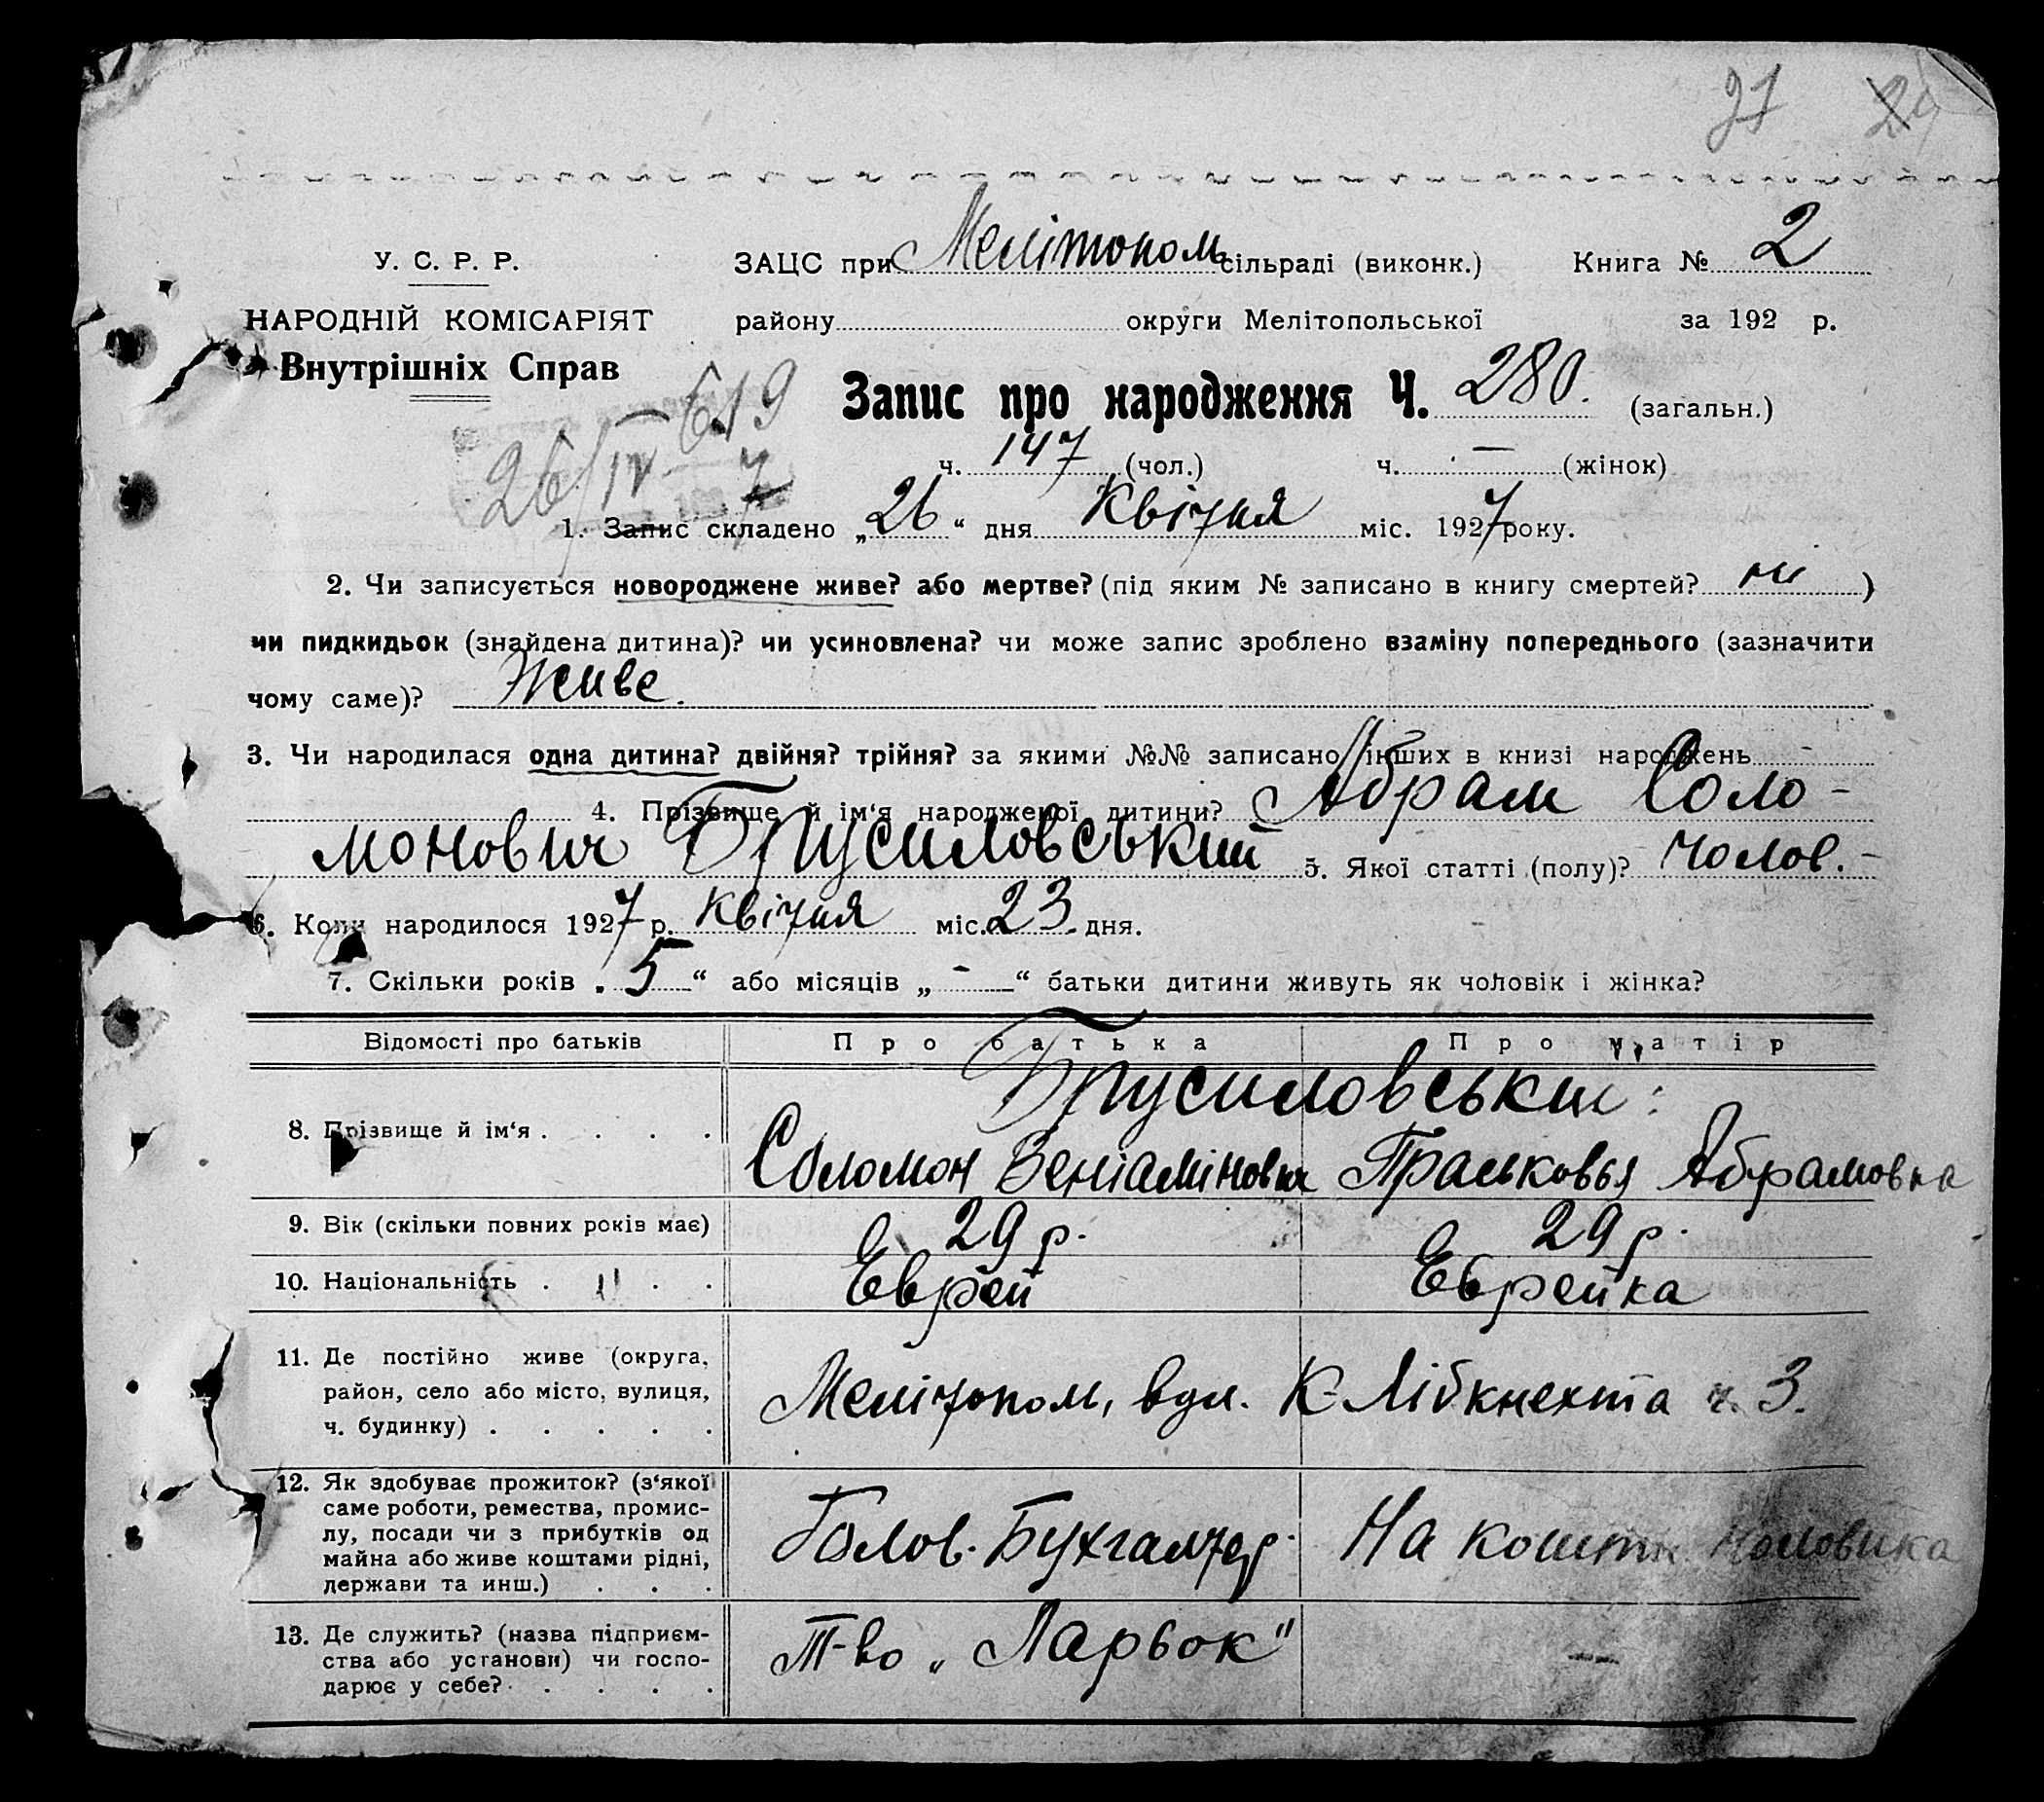 27 24
У. С. Р. Р. ЗАЦС при Мелітопол сільраді (виконк.) Книга № 2
НАРОДНІЙ КОМІСАРІЯТ району округи Мелітопольської за 192 р.
Внутрішніх Справ
619 Запис про народження Ч. 280. (загальн.)
26/IV 7 ч. 147 (чол.) ч. — (жінок)
1. Запис складено „26“ дня Квітня міс. 1927 року.
2. Чи записується новороджене живе? або мертве? (під яким № записано в книгу смертей? ні )
чи пидкидьок (знайдена дитина)? чи усиновлена? чи може запис зроблено взаміну попереднього (зазначити
чому саме)? Живе.
3. Чи народилася одна дитина? двійня? трійня? за якими №№ записано інших в книзі народжень -
4. Прізвище й ім‘я народженої дитини? Абрам Соло-
монович Брусиловський 5. Якої статті (полу)? Чолов.-
6. Коли народилося 1927 р. Квітня міс. 23 дня.
7. Скільки років „5“ або місяців „-“ батьки дитини живуть як чоловік і жінка?
Відомості про батьків Про батька Про матір
Брусиловськи:
8. Прізвище й ім‘я . . . . Соломон Веніамінович Прасковья Абрамовна
9. Вік (скільки повних років має) 29 р. 29 р.
10. Національність . . . . Еврей Еврейка
11. Де постійно живе (округа,
район, село або місто, вулиця, Мелітопол, вул. К Лібкнехта ч. 3.
ч. будинку) . . . . .
12. Як здобуває прожиток? (з‘якої
саме роботи, ремества, промис-
лу, посади чи з прибутків од Голов. Бухгалтер. На кошти чоловіка
майна або живе коштами рідні,
держави та инш.) . . .
13. Де служить? (назва підприєм-
ства або установи) чи госпо- Т-во „Ларьок“ —
дарює у себе? . . . .